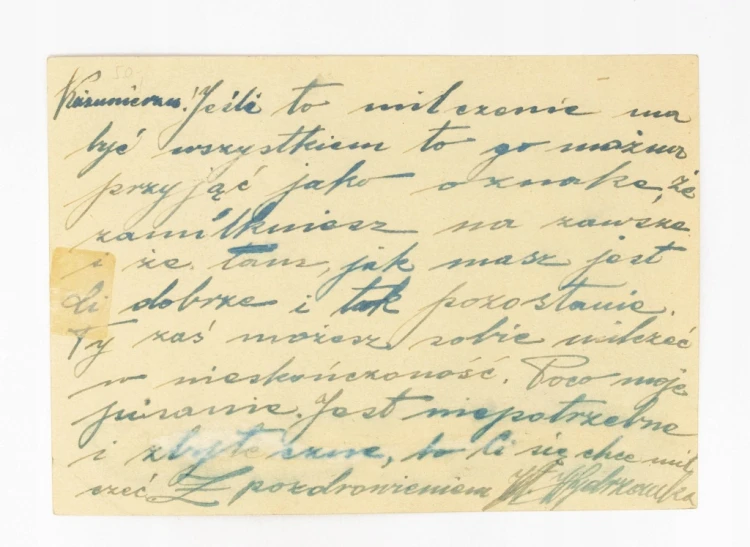 Kazimierzu! Jeśli to milczenie ma
być wszystkiem to go można
przyjąć jako oznakę, że
zamilkniesz na zawsze
i że tam, jak masz jest
Ci dobrze i tak pozostanie.
Ty zaś możesz sobie milczeć
w nieskończoność. Poco moje
pisanie. Jest niepotrzebne
i zbyteczne, bo Ci się chce mil
czeć. Z pozdrowieniem